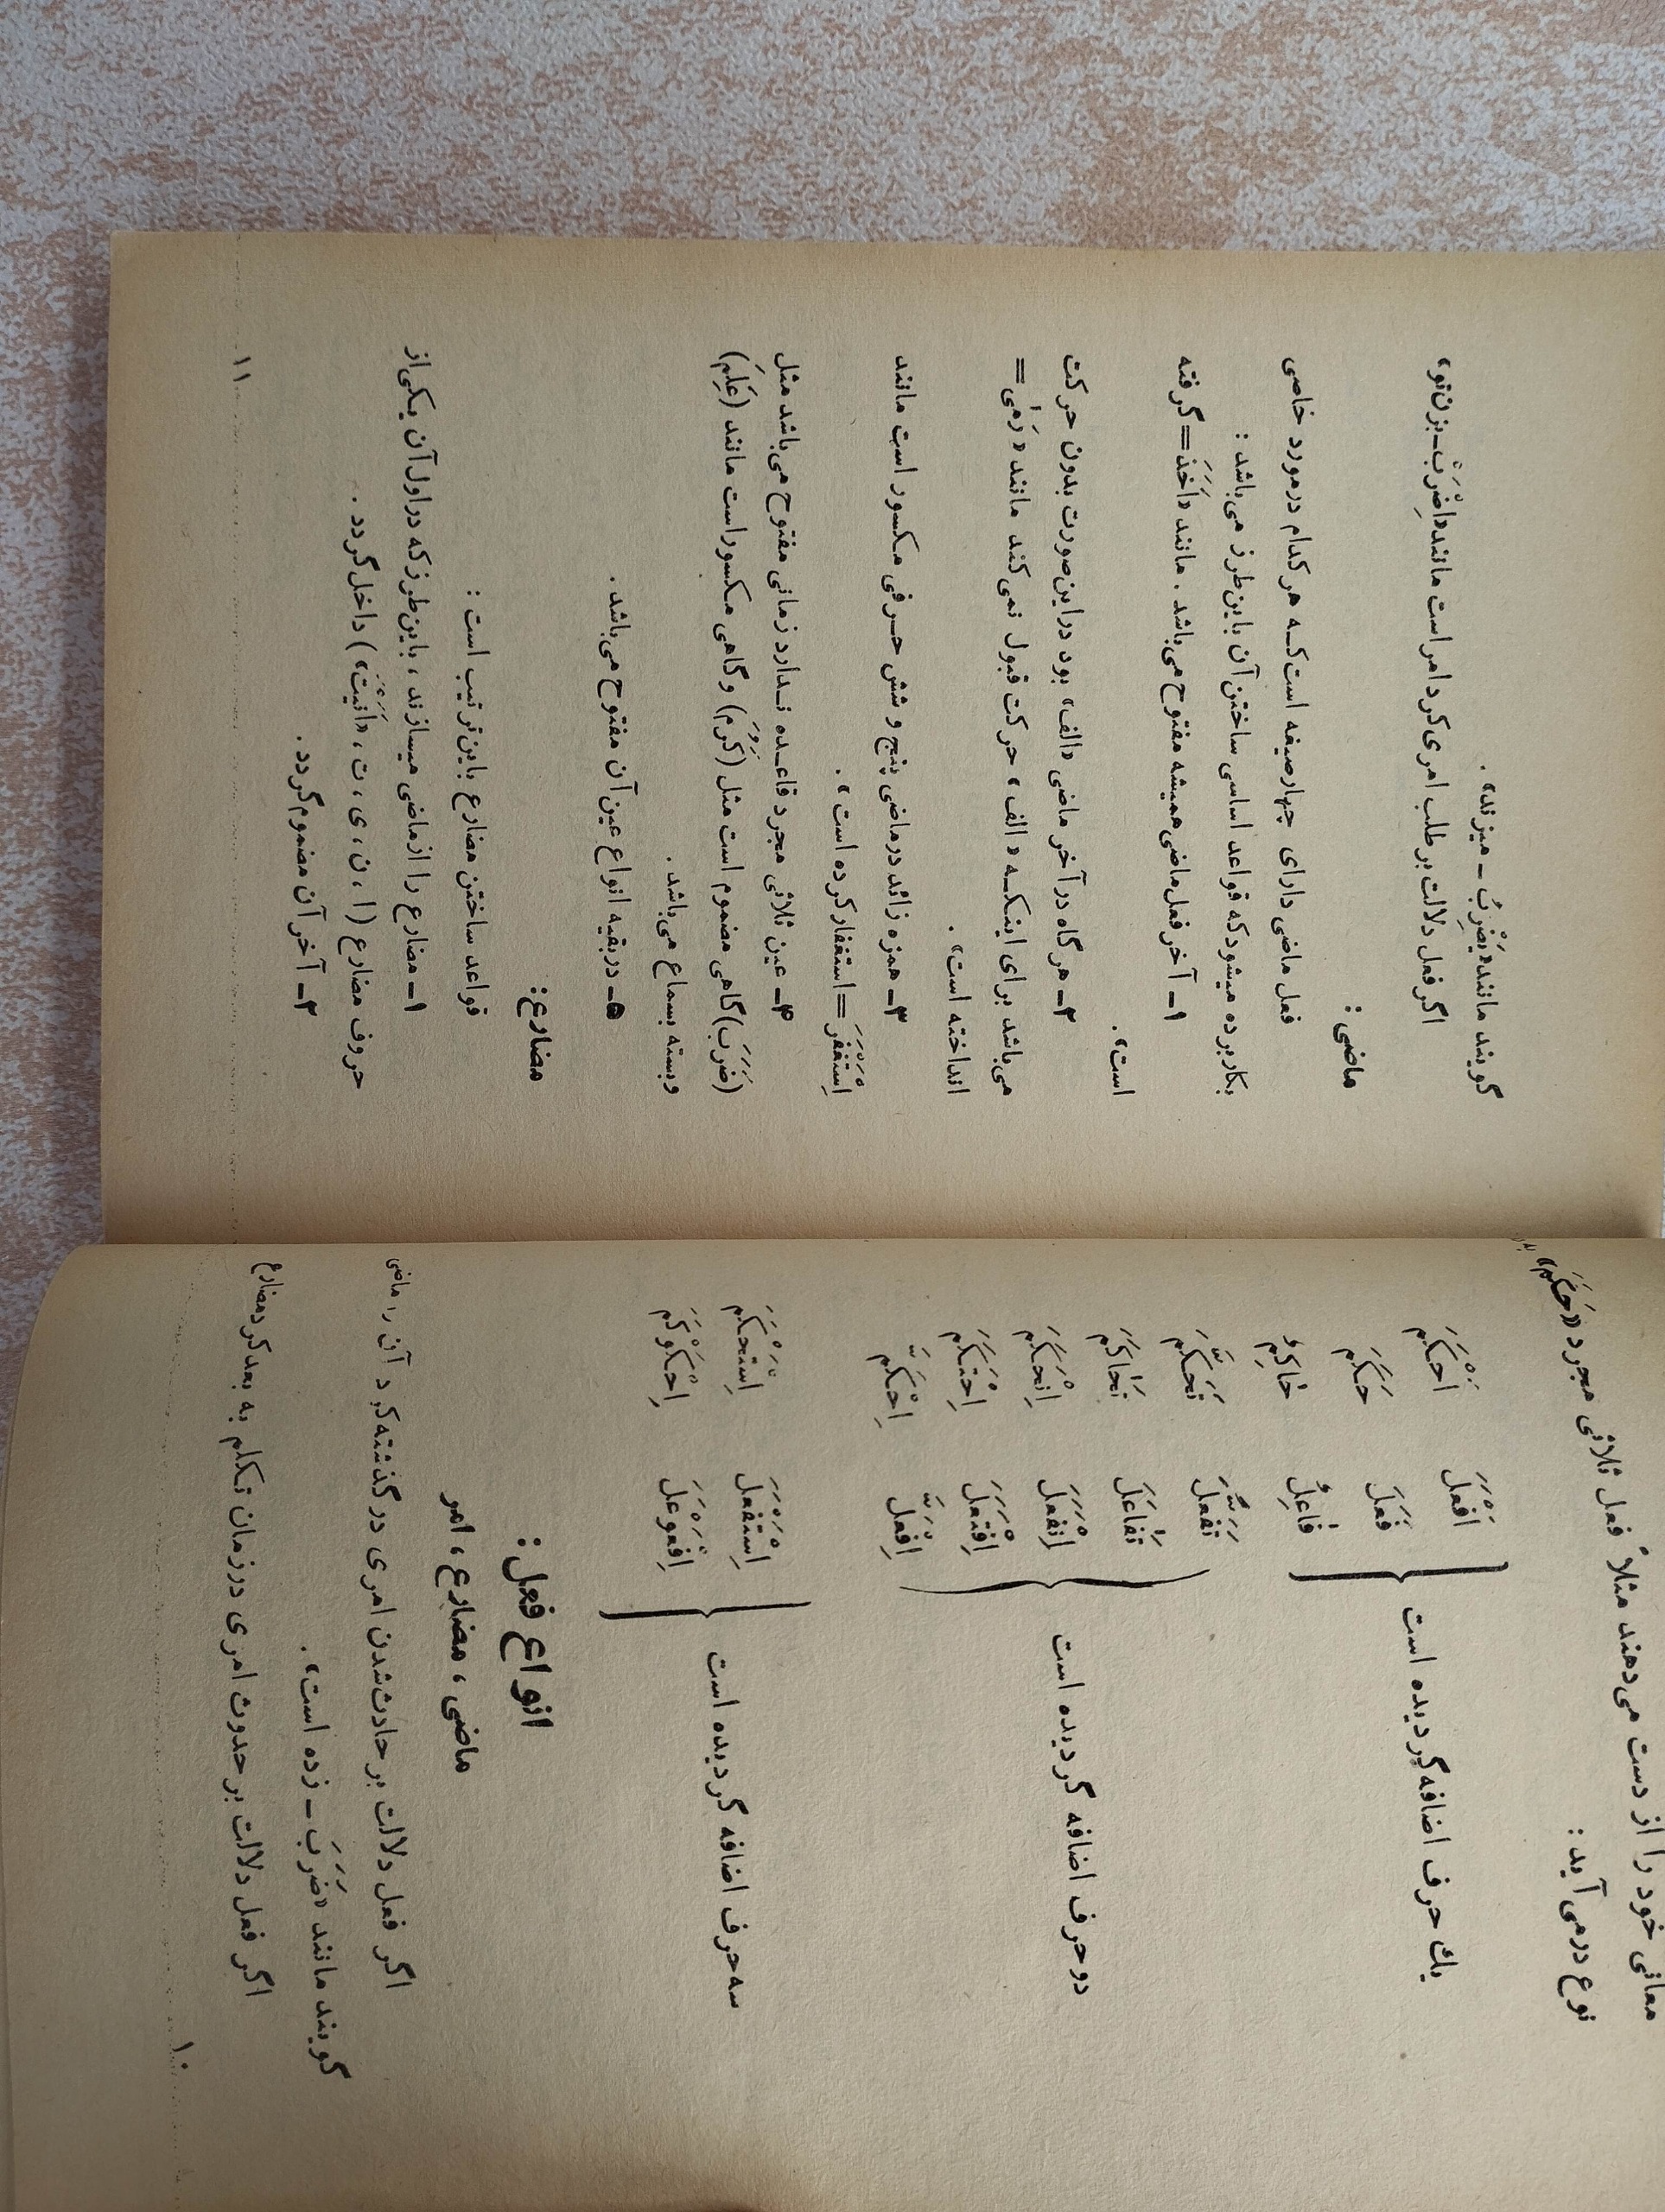 معانی خود را از دست می‌دهند مثلاً فعل ثلاثی مجرد «حَکَمَ»
نوع درمی‌آید :
یك حرف اضافه گردیده است
اَفْعَلَ اَحْکَمَ
فَعَلَ حَکَمَ
فٰاعِلُ حٰاکِمُ
دو حرف اضافه گردیده است
تَفَعَّلَ تَحَکَّمَ
تَفٰاعَلَ تَحٰاکَمَ
اِنْفَعَلَ اِنْحَکَمَ
اِفْتَعَلَ اِحْتَکَمَ
اِفْعَلَّ اِحْکَمَّ
سه حرف اضافه گردیده است
اِسْتَفْعَلَ اِسْتَحْکَمَ
اِفْعَوْعَلَ اِحْکَوْکَمَ
انواع فعل :
ماضی ، مضارع ، امر
اگر فعل دلالت بر حادث‌شدن امری در گذشته کرد آن را ماضی
گویند مانند «ضَرَبَ ـ زده است» .
اگر فعل دلالت بر حدوث امری درزمان تکلم به بعد کرد مضارع
۱۰
گویند مانند «یَضْرِبُ ـ میزند» .
اگر فعل دلالت بر طلب امری کرد امر است مانند «اِضْرَبْ ـ بزن‌تو»
ماضی :
فعل ماضی دارای چهارصیغه است کـه هر کدام درمورد خاصی
بکار برده میشود که قواعد اساسی ساختن آن باین‌طرز می‌باشد :
۱ـ آخر فعل‌ماضی همیشه مفتوح می‌باشد . مانند «اَخَذَ = گرفته
است» .
۲ـ هر گاه در آخر ماضی «الف» بود در این‌صورت بدون حرکت
می‌باشد برای اینکـه «الف» حرکت قبول نمی‌کند مانند «رَمیٰ =
انداخته است» .
۳ـ همزه زائد درماضی پنج و شش حـرفی مکسور است مانند
اِسْتَغْفَرَ = استغفار کرده است» .
۴ـ عین ثلاثی مجرد قاعـده نـدارد زمانی مفتوح می‌باشد مثل
(ضَرَبَ) گاهی مضموم است مثل (کَرُمَ) و گاهی مکسور است مانند (عَلِمَ)
وبسته بسماع می‌باشد .
۵ـ در بقیه انواع عین آن مفتوح می‌باشد .
مضارع:
قواعد ساختن مضارع باین‌ترتیب است :
۱ـ مضارع را از ماضی میسازند ، باین‌طرز که در اول آن یکی‌از
حروف مضارع ( ا ، ن ، ی ، ت ، «اَنَیْتَ» ) داخل گردد .
۲ـ آخر آن مضموم گردد.
۱۱